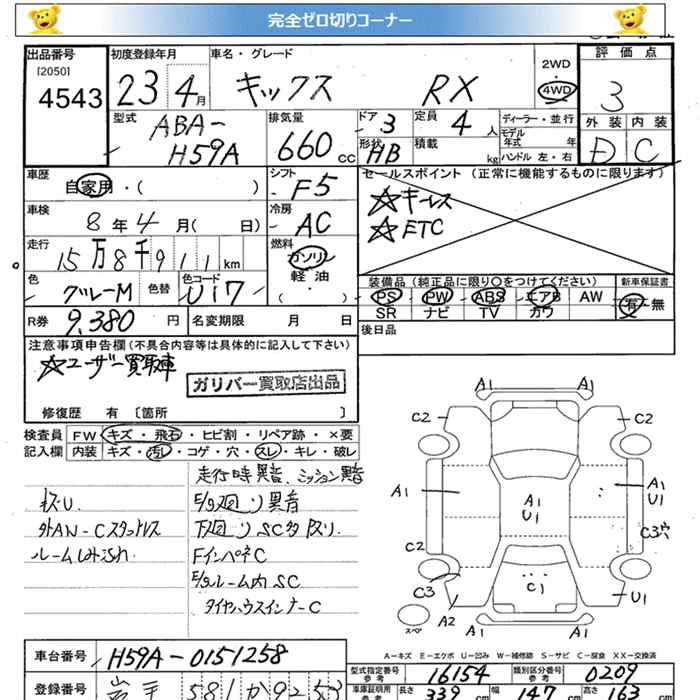 完全ゼロ切りコーナー
出品番号 初度登録年月 車名・グレード 2WD 評価点
[2050] 4543 23 4月 キックス RX 4WD 3
型式 排気量 ドア 定員 ディーラー・並行 外装 内装
ABA- 660 CC 3 4人 モデル年式 年 D C
H59A 形状 HB 積載 kg ハンドル 左・右
車歴 シフト セールスポイント (正常に機能するものに限ります)
自家用・( ) F5 ☆キーレス
車検 冷房 ☆ETC
8年4月( 日) AC
走行 燃料
15万8千911km ガソリン
色 色替 色コード 軽油 装備品 (純正品に限り○をつけてください) 新車保証書
グレーM U17 ・( ) PS PW ABS エアB AW 有・無
SR ナビ TV カワ
R券 9,380円 名変期限 月 日 後日品
注意事項申告欄 (不具合内容等は具体的に記入して下さい)
☆ユーザー買取車
ガリバー買取店出品
修復歴 有 〔箇所 〕
検査員 FW キズ・飛石・ヒビ割・リペア跡・×要
記入欄 内装 キズ・汚レ・コゲ・穴・スレ・キレ・破レ
走行時異音、ミッション異音
キズU. E/g廻り異音
外AN-Cスタットレス 下廻りSC多サリ.
ルームしみ汚れ FインパネC
E/gルーム内SC
タイヤハウスインナーC
A1 A1
C2 C2
A1 A1 U1 A1 U1
C2 C3穴
C3 C1
A2 U1
スペア
A1 A1
A-キズ E-エクボ U-凹み W-補修跡 S-サビ C-腐食 XX-交換済
車台番号 H59A-0151258 型式指定番号 参考 16154 類別区分番号 参考 0209
登録番号 岩手 581 か 9253 車庫証明用 参考 長さ 339 cm 幅 147 cm 高さ 163 cm